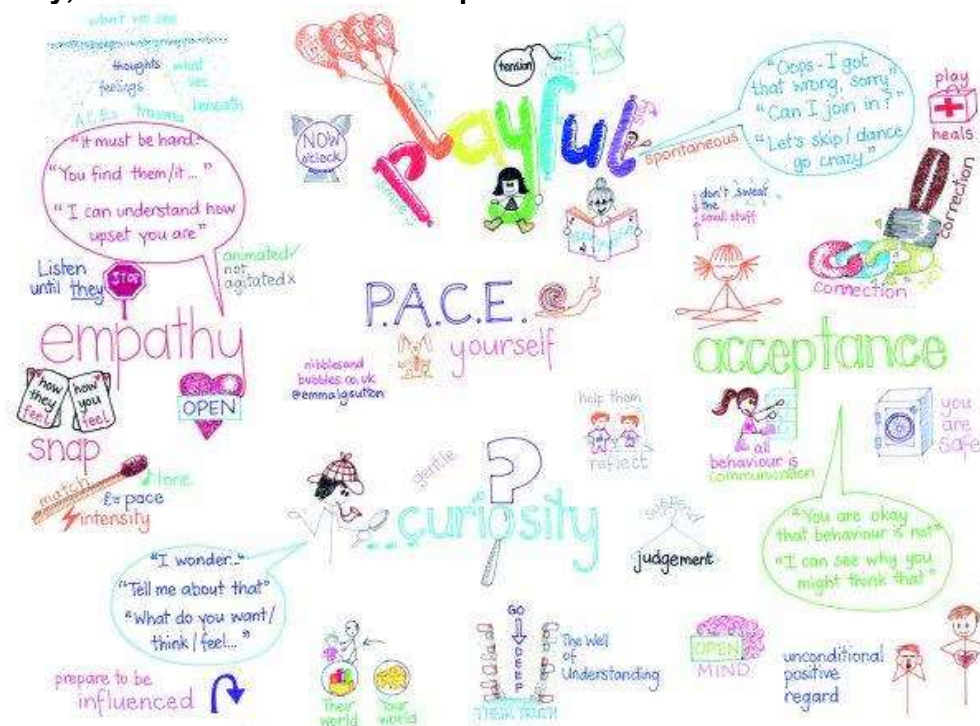 what we see
thoughts
feelings
what
lies
beneath
A.C.Es trauma
"it must be hard."
"You find them/it..."
"I can understand how
upset you are"
animated✓
not
agitated x
Listen
until they
STOP
empathy
how
they
feel
how
you
feel
OPEN
snap
match
tone
pace
intensity
NOW
o'clock
tension
fun
playful
spontaneous
"Oops - I got
that wrong, sorry"
"Can I join in?"
"Let's skip/dance
go crazy"
play
heals
don't sweat
the
small stuff
correction
connection
P.A.C.E.
yourself
nibblesand
bubbles.co.uk
@emmalgsutton
acceptance
all
behaviour is
communication
you
are
safe
"You are okay
that behaviour is not"
"I can see why you
might think that"
help them
reflect
gentle
?
...curiosity
suspend
judgement
"I wonder.."
"Tell me about that"
"What do you want/
think/feel..."
prepare to be
influenced
Their
world
Your
world
GO
DEEP
The Well
of
Understanding
THEIR TRUTH
OPEN
MIND
unconditional
positive
regard